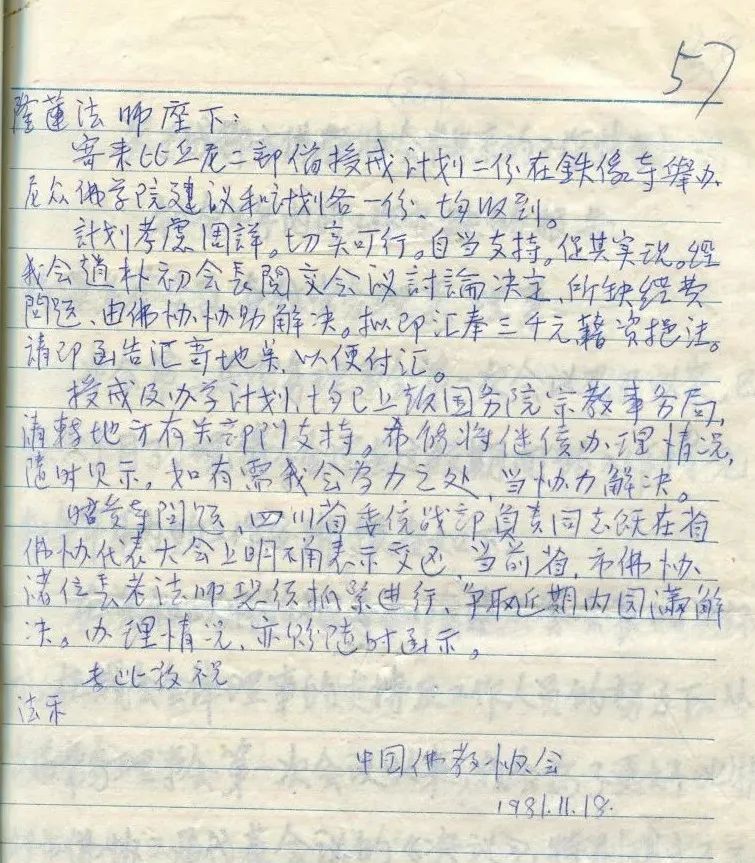 57
隆莲法师座下：
寄来比丘尼二部僧授戒计划二份、在鉄像寺举办
尼众佛学院建议和计划各一份、均收到。
计划考虑周詳。切实可行。自当支持。促其实现。经
我会趙朴初会長閱交会议討論决定、所缺经费
問题、由佛协协助解决。拟即汇奉三千元藉资挹注。
請即函告汇寄地点、以便付汇。
授戒及办学计划、均已上報国务院宗教事务局，
请转地方有关部門支持。希你将继续办理情况，
随时见示。如有需我会为力之处、当协力解决。
昭觉寺問题、四川省委统战部負责同志既在省
佛协代表大会上明确表示交还、当前省、市佛协、
诸位長老法师 抓紧進行、争取近期内圆满解
决。办理情况、亦盼随时函示。
专此敬祝
法乐
中国佛教协会
1981.11.18.